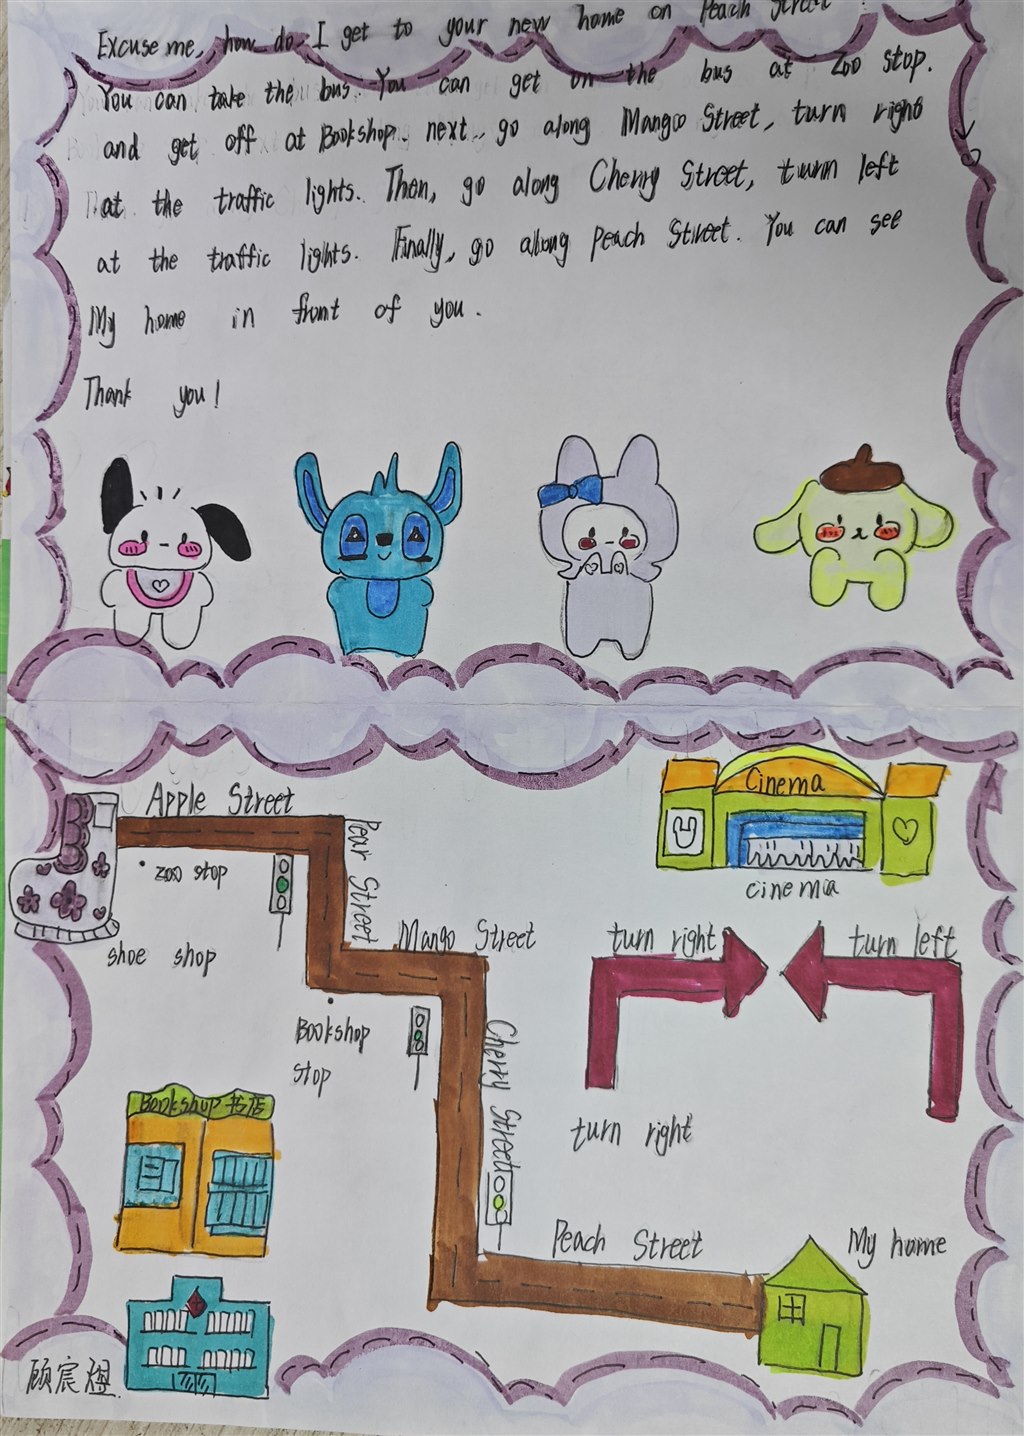 Excuse me, how do I get to your new home on Peach Street?
You can take the bus. You can get on the bus at Zoo stop.
and get off at Bookshop. next, go along Mango Street, turn right
at the traffic lights. Then, go along Cherry Street, turn left
at the traffic lights. Finally, go along Peach Street. You can see
My home in front of you.
Thank you!
Apple Street
Pear Street
zoo stop
shoe shop
Mango Street
Cinema
cinema
turn right
turn left
Bookshop
stop
Cherry Street
Bookshop 书店
turn right
Peach Street
My home
顾宸煜